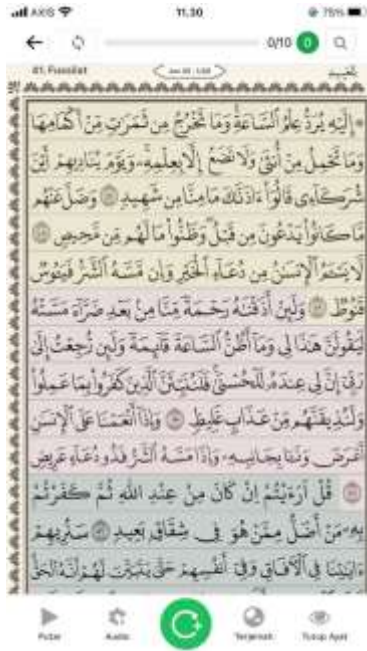 AXIS 11.30 75%
0/10 0
41. Fussilat
۞إِلَيْهِ يُرَدُّ عِلْمُ ٱلسَّاعَةِ وَمَا تَخْرُجُ مِن ثَمَرَٰتٍ مِّنْ أَكْمَامِهَا
وَمَا تَحْمِلُ مِنْ أُنثَىٰ وَلَا تَضَعُ إِلَّا بِعِلْمِهِۦ وَيَوْمَ يُنَادِيهِمْ أَيْنَ
شُرَكَآءِى قَالُوٓا۟ ءَاذَنَّٰكَ مَا مِنَّا مِن شَهِيدٍ ۝ وَضَلَّ عَنْهُم
مَّا كَانُوا۟ يَدْعُونَ مِن قَبْلُ وَظَنُّوا۟ مَا لَهُم مِّن مَّحِيصٍ ۝
لَّا يَسْـَٔمُ ٱلْإِنسَٰنُ مِن دُعَآءِ ٱلْخَيْرِ وَإِن مَّسَّهُ ٱلشَّرُّ فَيَـُٔوسٌ
قَنُوطٌ ۝ وَلَئِنْ أَذَقْنَٰهُ رَحْمَةً مِّنَّا مِنۢ بَعْدِ ضَرَّآءَ مَسَّتْهُ
لَيَقُولَنَّ هَٰذَا لِى وَمَآ أَظُنُّ ٱلسَّاعَةَ قَآئِمَةً وَلَئِن رُّجِعْتُ إِلَىٰ
رَبِّىٓ إِنَّ لِى عِندَهُۥ لَلْحُسْنَىٰ فَلَنُنَبِّئَنَّ ٱلَّذِينَ كَفَرُوا۟ بِمَا عَمِلُوا۟
وَلَنُذِيقَنَّهُم مِّنْ عَذَابٍ غَلِيظٍ ۝ وَإِذَآ أَنْعَمْنَا عَلَى ٱلْإِنسَٰنِ
أَعْرَضَ وَنَـَٔا بِجَانِبِهِۦ وَإِذَا مَسَّهُ ٱلشَّرُّ فَذُو دُعَآءٍ عَرِيضٍ
۝ قُلْ أَرَءَيْتُمْ إِن كَانَ مِنْ عِندِ ٱللَّهِ ثُمَّ كَفَرْتُم
بِهِۦ مَنْ أَضَلُّ مِمَّنْ هُوَ فِى شِقَاقٍۭ بَعِيدٍ ۝ سَنُرِيهِمْ
ءَايَٰتِنَا فِى ٱلْـَٔافَاقِ وَفِىٓ أَنفُسِهِمْ حَتَّىٰ يَتَبَيَّنَ لَهُمْ أَنَّهُ ٱلْحَقُّ
Putar Audio Terjemah Tutup Ayat